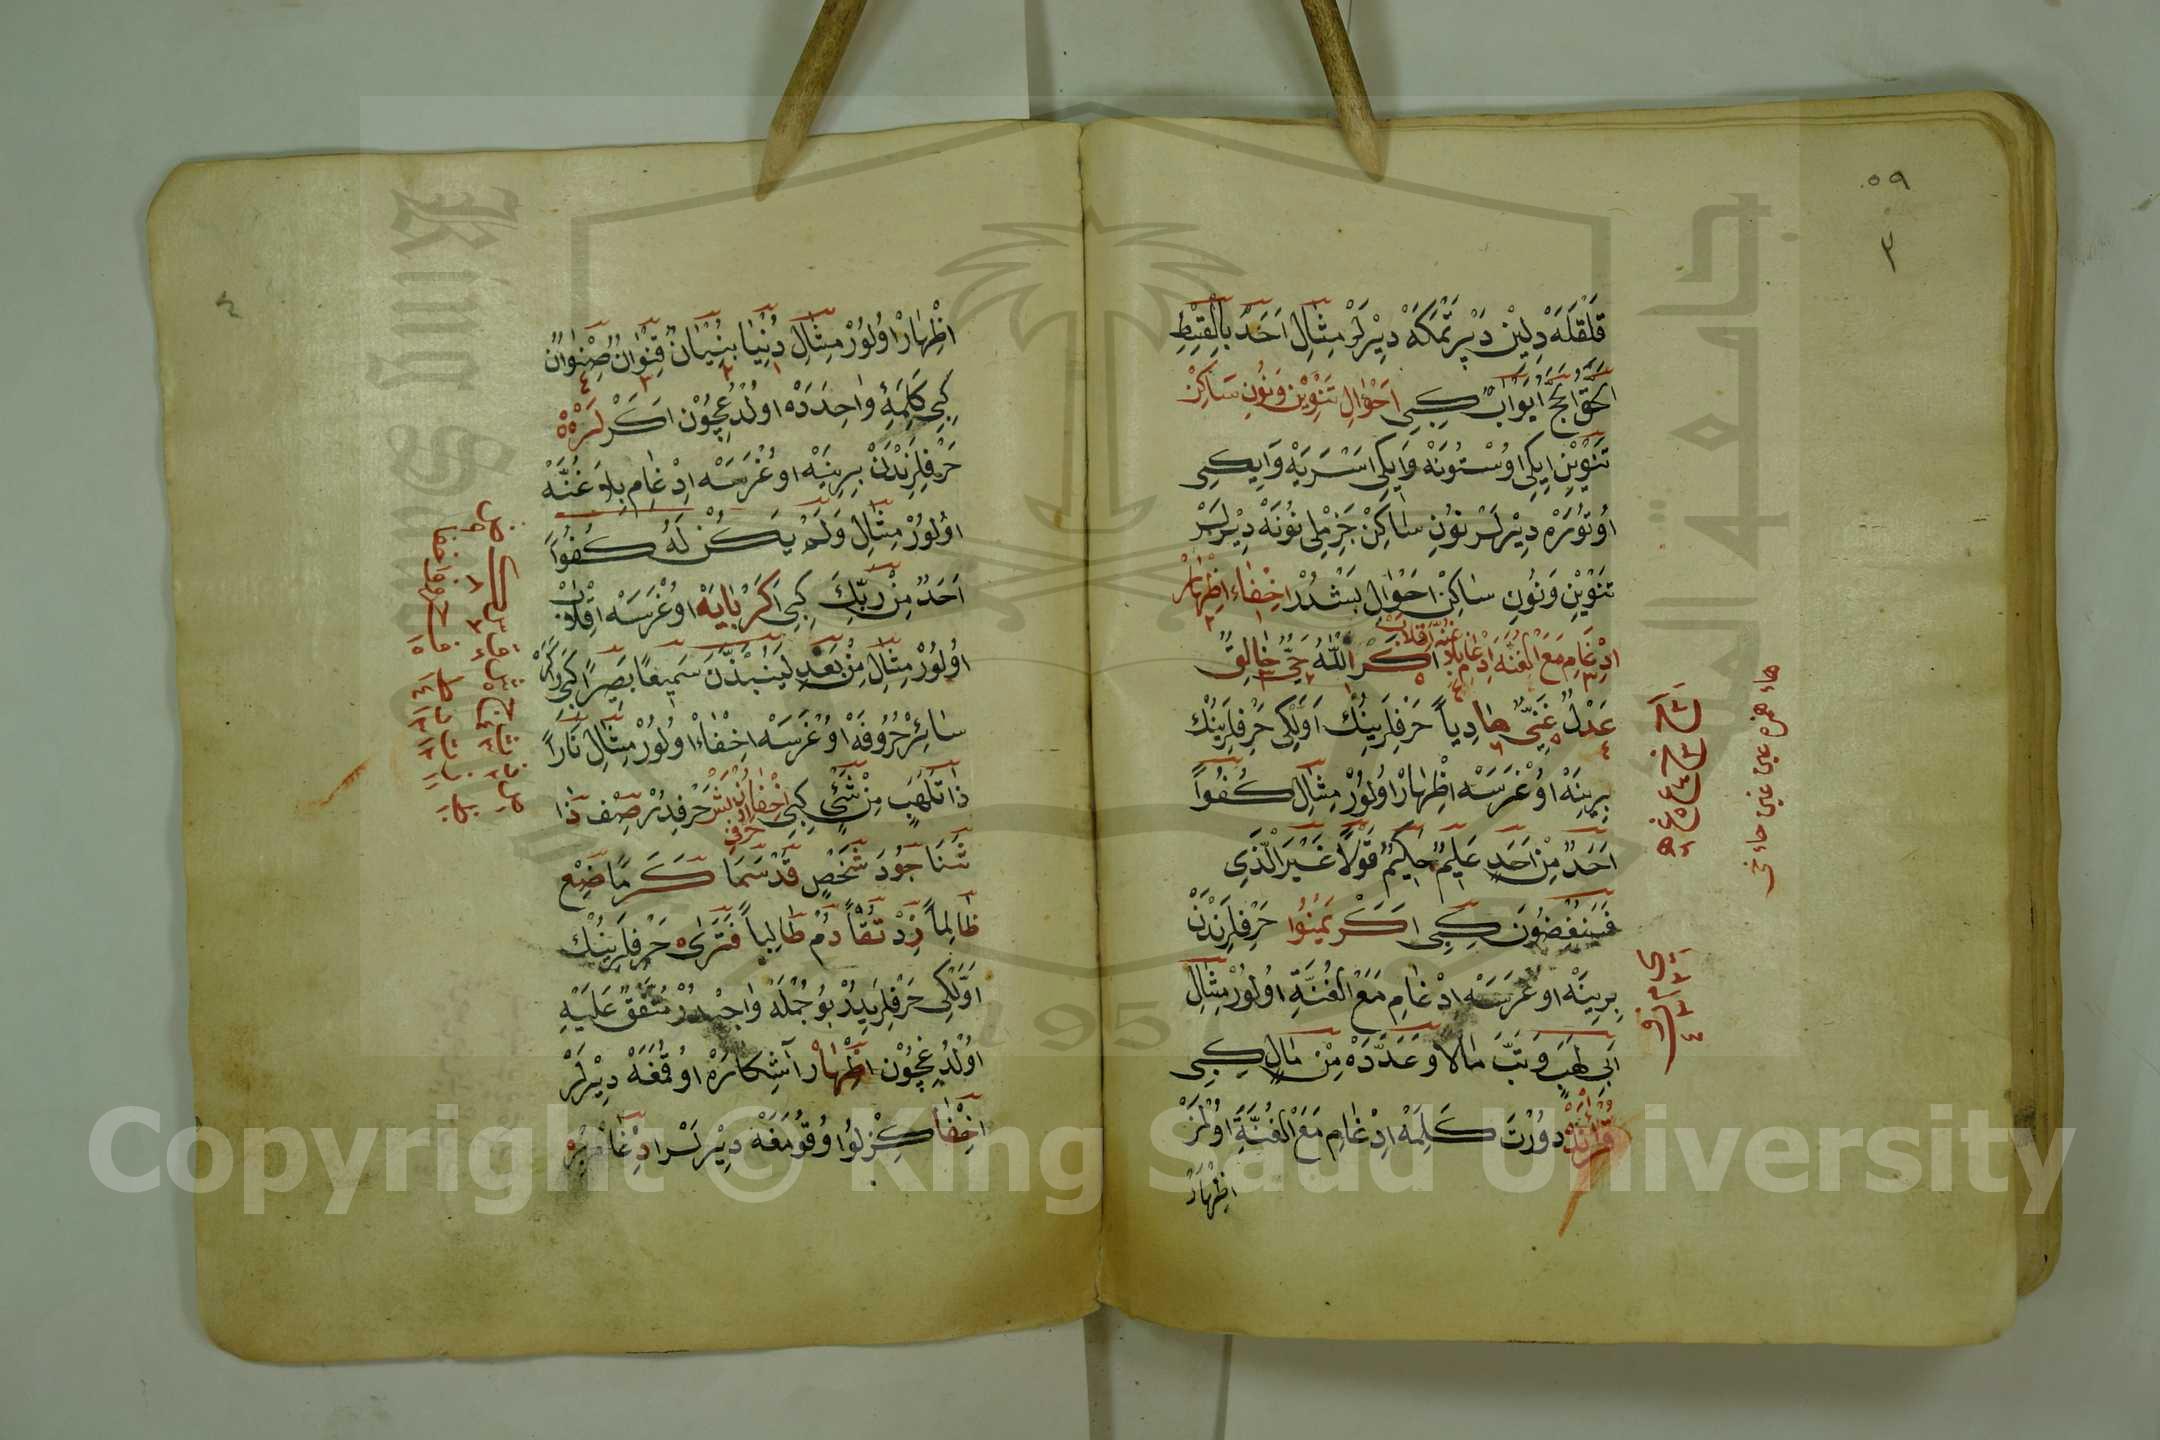 ٥٩
٣
قَلْقَلَهْ دِلِينْ دَپْرَتْمَكَهْ دِيْرلَرْ مِثَالِ اَحَدٌ بِالْقِسْطِ
اَلْحَقُّ اَلْحَجُّ اَبْوَابٌ كِبِى اَحْوَالِ تَنْوِيْن وَنُونِ سَاكِنْ
تَنْوِيْنِ اِيكِى اوُسْتُونَهْ وَايكِى اَسْرَيَهْ وَاِيكِى
اوُتُورَهْ دِيْرلَرْ نوُنِ سَاكِنْ جَزِمْلِى نوُنَهْ دِيْرلَرْ
تَنْوِيْن وَنُونِ سَاكِنْ اَحْوَالِ بَشْدُرْ اِخْفَاء اِظْهَارْ
اِدْغَامِ مَعَ الْغُنَّه اِدْغَامِ بِلاَ غُنَّه اِقْلاَبْ اَكَرْ اَللهُ حَىٌّ خَالِقٌ
عَدْلٌ غَنِىٌّ هَادِياً حَرْفلَرِينُكْ اَوَّلكِى حَرْفلَرِينُكْ
بِرِينَهْ اوُغْرَسَهْ اِظْهَارْ اوُلُورْ مِثَالِ كُفُوًا
اَحَدٌ مِنْ اَحَدٍ عَلِيمٌ حَكِيمٌ قَوْلاً غَيْرَ الَّذِى
فَسَيُنْغِضُونَ كِبِى اَكَرْ يَمْنُوا حَرْفلَرِنْدَنْ
بِرِينَهْ اوُغْرَسَهْ اِدْغَامِ مَعَ الْغُنَّةِ اوُلُورْ مِثَالِ
اَبِى لَهَبٍ وَتَبَّ مَالاً وَعَدَّدَهْ مِنْ مَالٍ كِبِى
قُرْآنْدَهْ دوُرْتْ كَلِمَهْ اِدْغَامِ مَعَ الْغُنَّةِ اوُلْمَزْ
اِظْهَارْ
هاء همزه عين غين حاء خى
٤
اِظْهَارْ اوُلُورْ مِثَالِ دُنْيَا بُنْيَانٌ قِنْوَانٌ صِنْوَانٌ
كِبِى كَلِمَۀِ وَاحِدَدَهْ اولدُغِچُوْن اَكَرْ لَرْ
حَرْفلَرِنْدَنْ بِرِينَهْ اوُغْرَسَهْ اِدْغَامِ بِلاَ غُنَّه
اوُلُورْ مِثَالِ وَلَمْ يَكُنْ لَهُ كُفُوًا
اَحَدٌ مِنْ رَبِّكَ كِبِى اَكَرْ بَايَهْ اوُغْرَسَهْ اِقْلاَبْ
اوُلُورْ مِثَالِ مِنْ بَعْدِ لَيُنْبَذَنَّ سَمِيعًا بَصِيرًا كِبِى وَاكَرْ
سَائِرْ حُرُوفَهْ اوُغْرَسَهْ اِخْفَاءْ اوُلُورْ مِثَالِ نَارًا
ذَاتَ لَهَبٍ مِنْ شَىْءٍ كِبِى اِخْفَا اون بَشْ حَرْفدُرْ صِفْ ذَا
حرفى
ثَنَا جُودَ شَخْصٍ قَدْ سَمَا كَرَمًا ضِعْ
ظَالِماً زِدْ تُقًا دُمْ طَالِباً فَتَرَى حَرْفلَرِينُكْ
اَوَّلْكِى حَرْفلَرِيدُرْ بوُ جُمْلَهْ وَاجِبْدُرْ مُتَّفَقٌ عَلَيْهِ
اوُلْدُغِچُوْن اِظْهَارْ آشِكَارَهْ اوُقُمَغَهْ دِيْرلَرْ
اِخْفَا كِزْلُوا وُقوُمَغَهْ دِيْرلَرْ اِدْغَامْ بِرْ
Copyright © King Saud University
1957